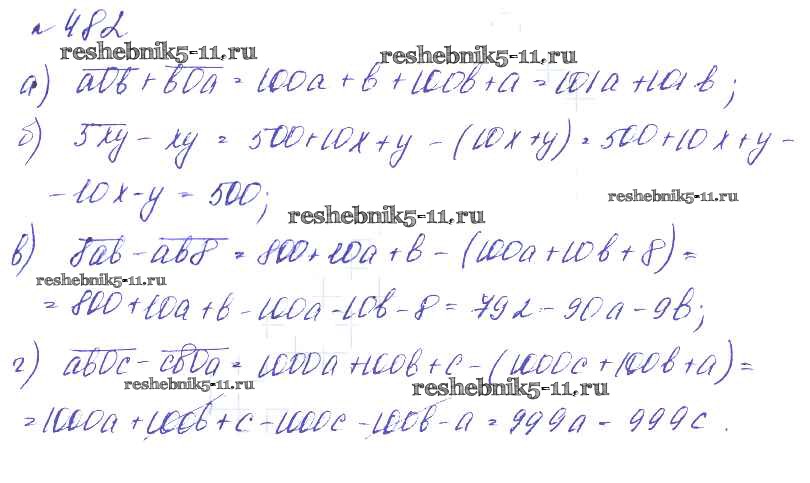 №482
reshebnik5-11.ru reshebnik5-11.ru
а) a0b + b0a = 100a + b + 100b + a = 101a + 101b;
б) 5xy - xy = 500 + 10x + y - (10x + y) = 500 + 10x + y -
- 10x - y = 500;
reshebnik5-11.ru
reshebnik5-11.ru
в) 8ab - ab8 = 800 + 10a + b - (100a + 10b + 8) =
reshebnik5-11.ru
= 800 + 10a + b - 100a - 10b - 8 = 792 - 90a - 9b;
г) ab0c - cb0a = 1000a + 100b + c - (1000c + 100b + a) =
reshebnik5-11.ru reshebnik5-11.ru
= 1000a + 100b + c - 1000c - 100b - a = 999a - 999c.